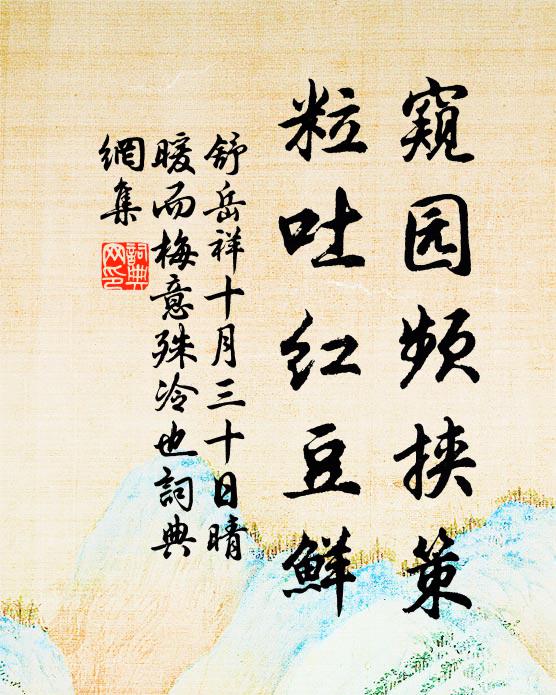 窺园频挟策
粒吐红豆鮮
舒岳祥十月三十日晴
暖而梅意殊冷也詞典
網集
詞典网印